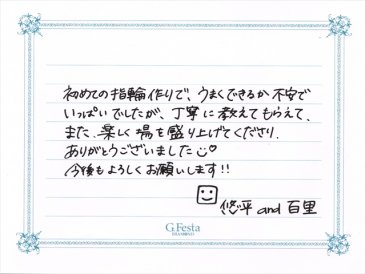 初めての指輪作りで、うまくできるか不安で
いっぱいでしたが、丁寧に教えてもらえて、
また、楽しく場を盛り上げてくださり、
ありがとうございました♡
今後もよろしくお願いします!!
悠平 and 百里
G.Festa